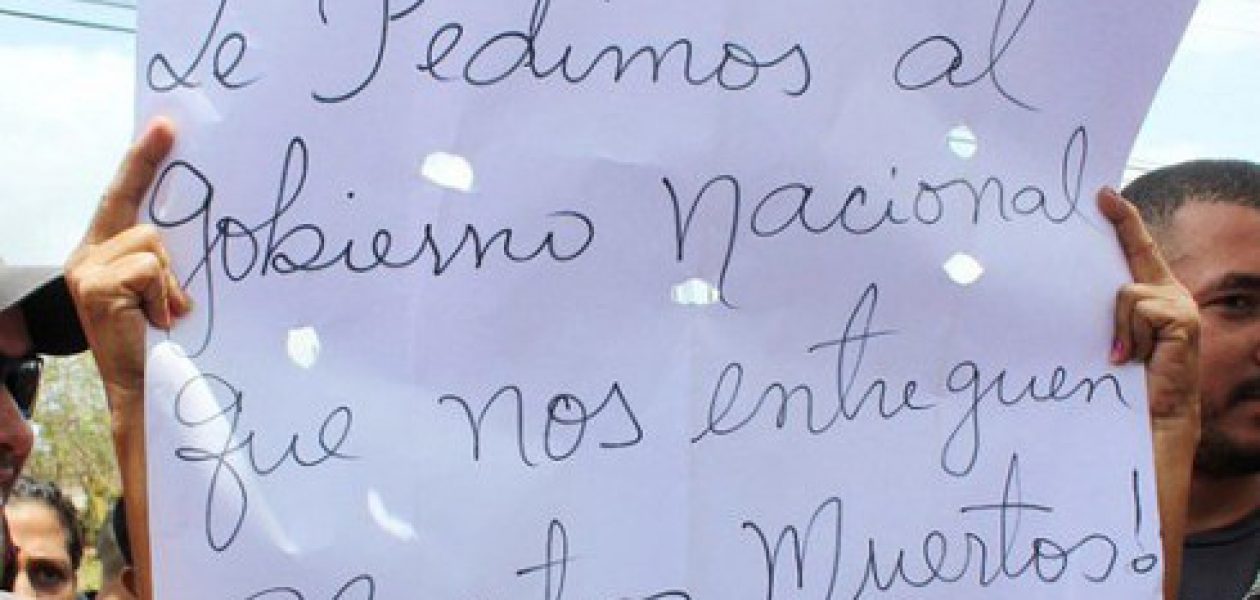 Le Pedimos al
gobierno Nacional
que nos entreguen
Muertos!